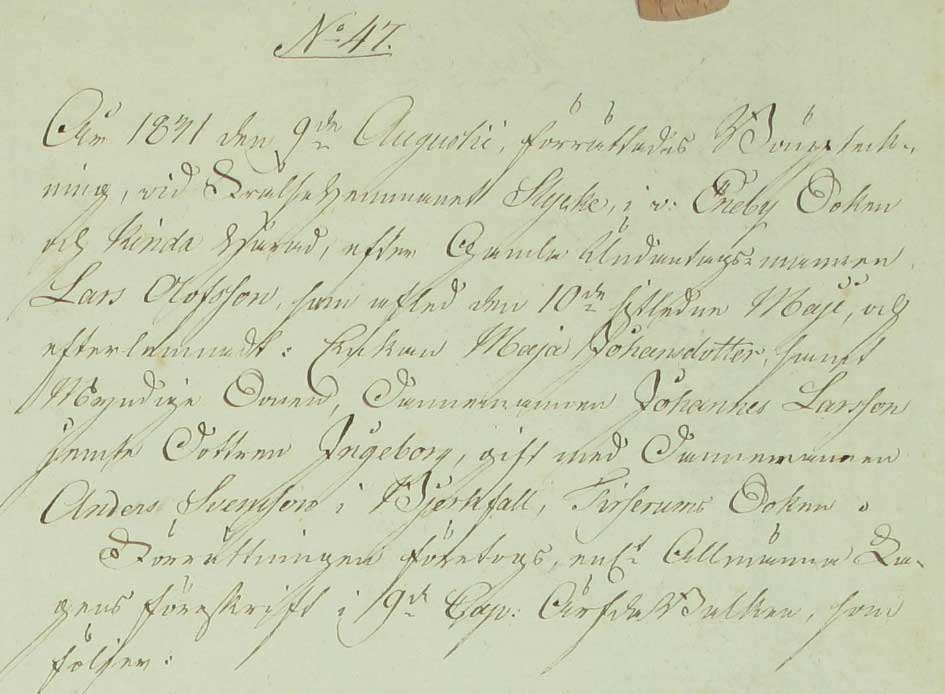 No 47.
År 1831 den 9de Augusti, förrättades Bouptek-
ning, vid Frälsehemmanet Stycke, i v: Eneby Soken
och Kinda Härad, efter Gamla Undantags-mannen
Lars Olofsson, som afled den 10de sistledne Maji, och
efterlemnadt: Enkan Maja Johansdotter, samt
Myndige Sonen, Dannemannen Johannes Larsson
jemte Dottren Ingeborg, gift med Dannemannen
Anders Svensson i Bjerkfall, Tirserums Soken.
Förrättningen företogs, enl:t Allmänna La-
gens föreskrift i 9de Cap: Ärfda Balken, som
följer: